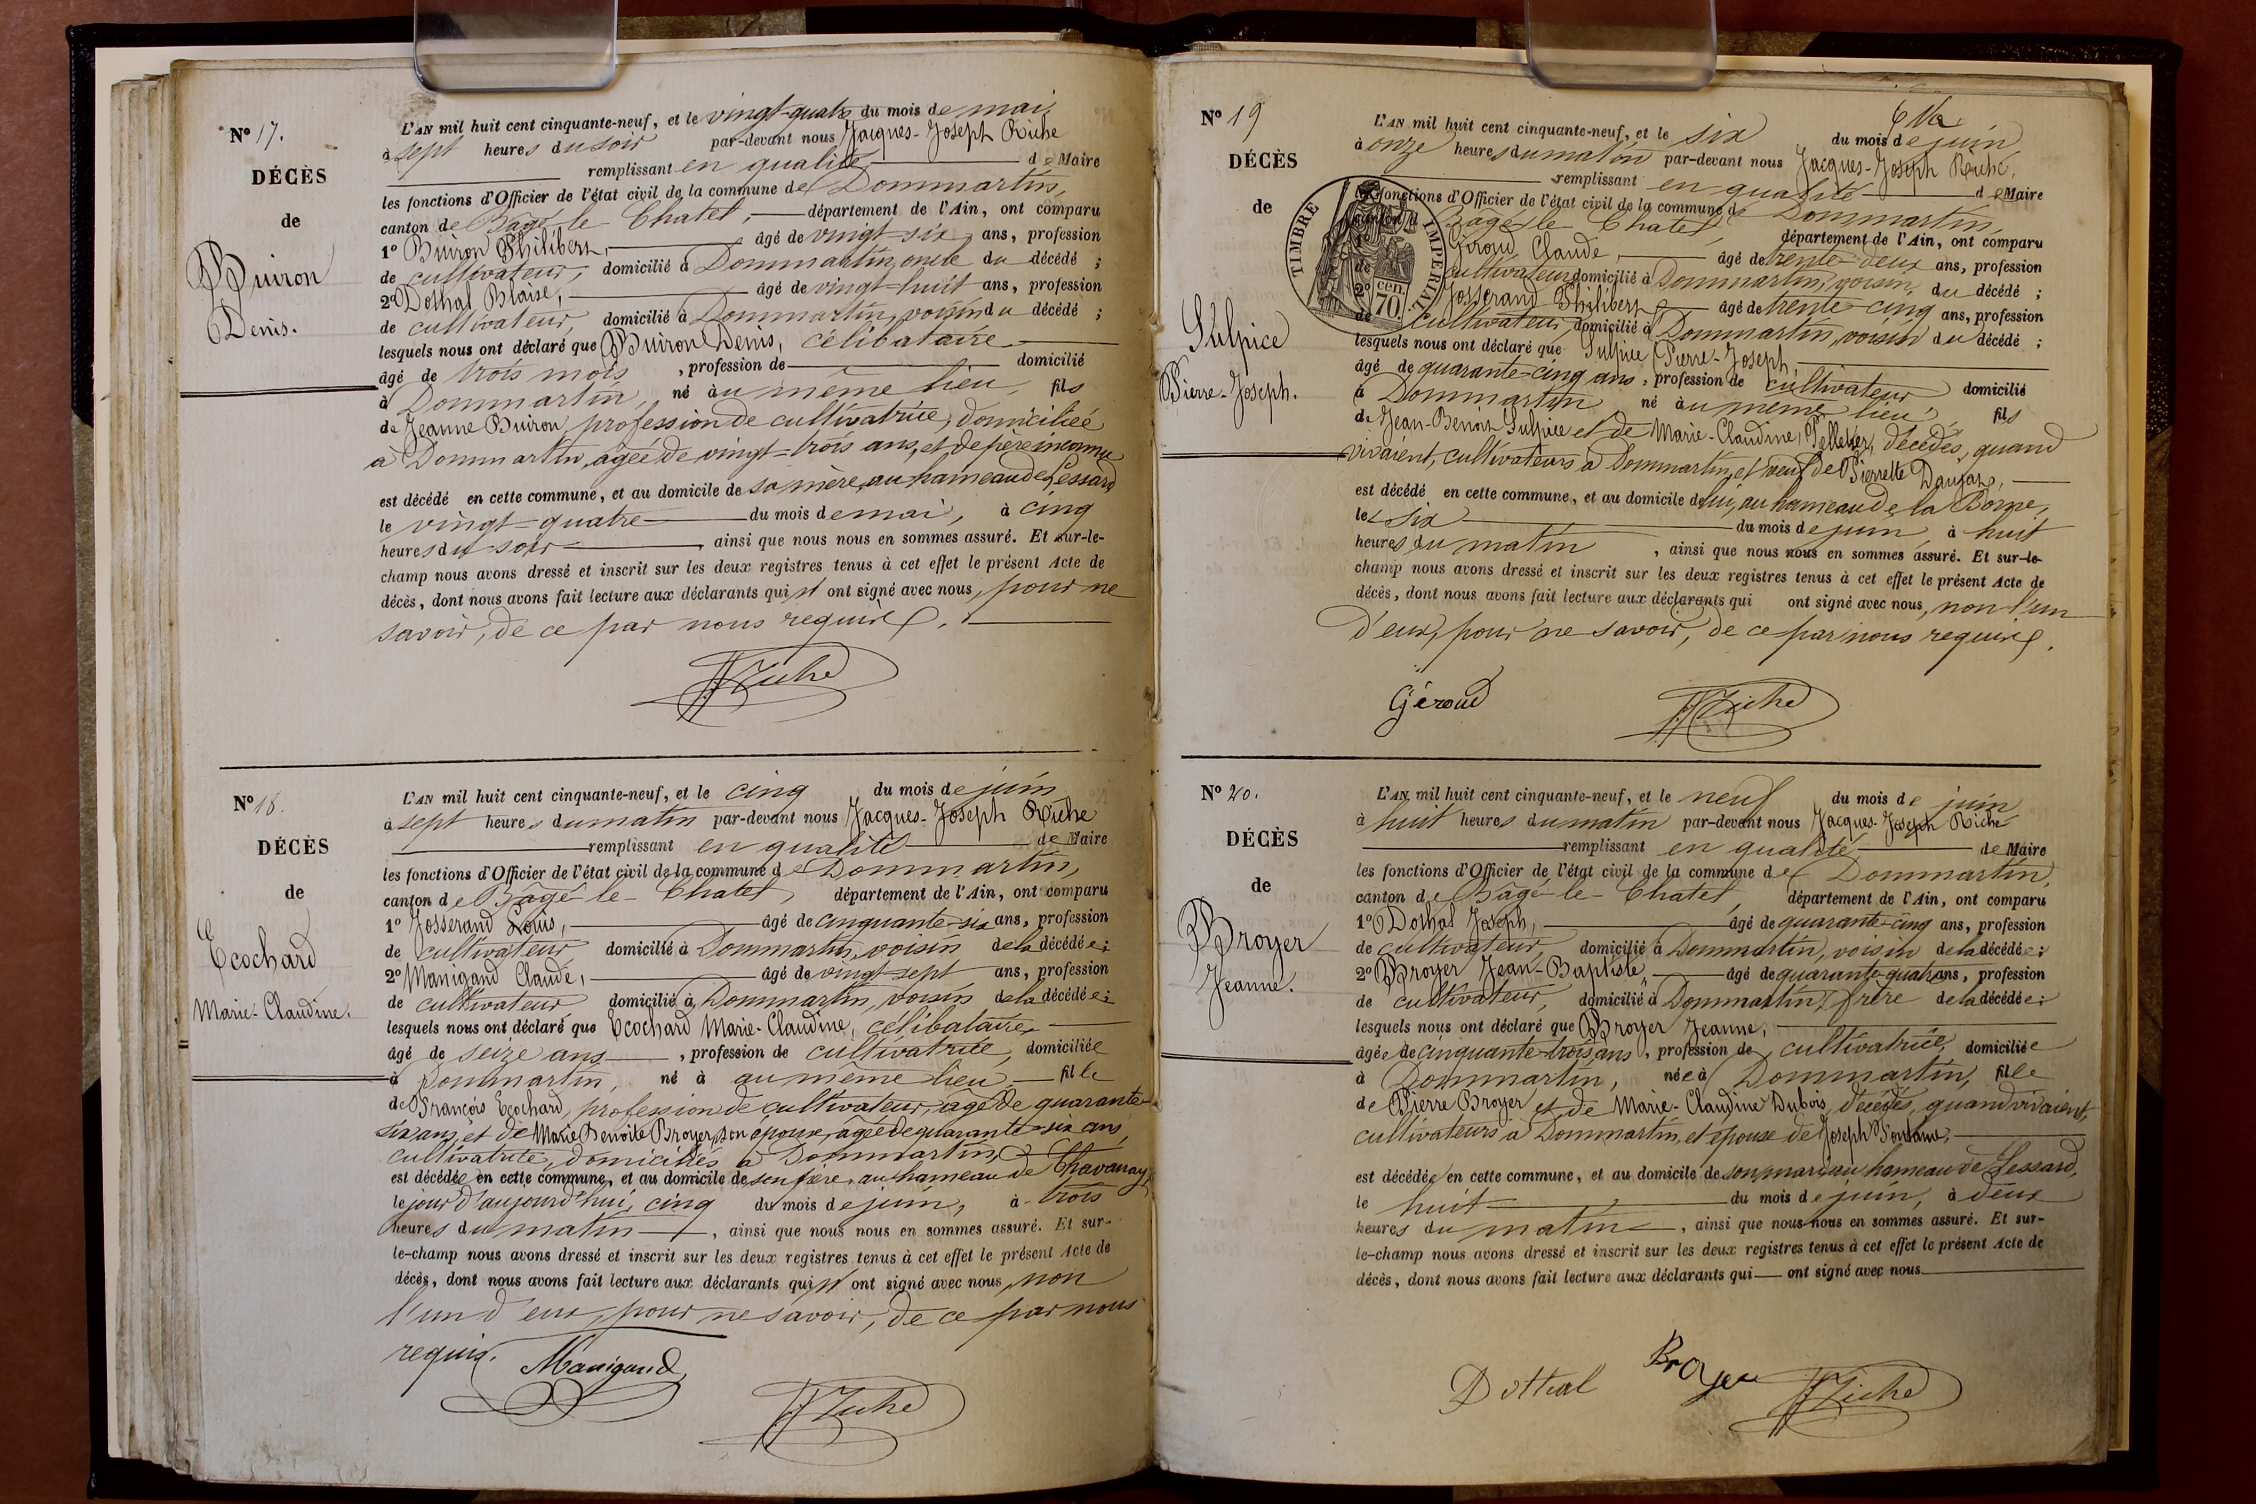 N° 17.
DÉCÈS
de
Buiron
Denis.
L'AN mil huit cent cinquante-neuf, et le vingt-quatre du mois de mai,
à sept heures du soir par-devant nous Jacques-Joseph Riche
remplissant en qualité de Maire
les fonctions d'Officier de l'état civil de la commune de Dommartin,
canton de Bâgé-le-Chatel, département de l'Ain, ont comparu
1° Buiron Philibert, âgé de vingt-six ans, profession
de cultivateur, domicilié à Dommartin, oncle du décédé ;
2° Dothal Blaise, âgé de vingt-huit ans, profession
de cultivateur, domicilié à Dommartin, voisin du décédé ;
lesquels nous ont déclaré que Buiron Denis, célibataire
âgé de trois mois, profession de domicilié
à Dommartin, né à au même lieu, fils
de Jeanne Buiron, profession de cultivatrice, domiciliée
à Dommartin, agée de vingt-trois ans, et de père inconnu
est décédé en cette commune, et au domicile de sa mère, au hameau de Lessard
le vingt-quatre du mois de mai, à cinq
heures du soir, ainsi que nous nous en sommes assuré. Et sur-le-
champ nous avons dressé et inscrit sur les deux registres tenus à cet effet le présent Acte de
décès, dont nous avons fait lecture aux déclarants qui n'ont signé avec nous, pour ne
savoir, de ce par nous requis.
JJ Riche
N° 18.
DÉCÈS
de
Ecochard
Marie-Claudine.
L'AN mil huit cent cinquante-neuf, et le cinq du mois de juin
à sept heures du matin par-devant nous Jacques-Joseph Riche
remplissant en qualité de Maire
les fonctions d'Officier de l'état civil de la commune de Dommartin,
canton de Bâgé-le-Chatel, département de l'Ain, ont comparu
1° Josserand Louis, âgé de cinquante-six ans, profession
de cultivateur domicilié à Dommartin, voisin de la décédée ;
2° Manigand Claude, âgé de vingt-sept ans, profession
de cultivateur domicilié à Dommartin, voisin de la décédée ;
lesquels nous ont déclaré que Ecochard Marie-Claudine, célibataire
âgé de seize ans, profession de cultivatrice, domiciliée
à Dommartin, né à au même lieu fille
de François Ecochard, profession de cultivateur, agé de quarante-
six ans, et de Marie Benoite Broyer, son épouse, âgée de quarante-six ans,
cultivatrice, domiciliés à Dommartin,
est décédée en cette commune, et au domicile de son père, au hameau de Chavanay,
le jour d'aujourd'hui, cinq du mois de juin, à trois
heures du matin, ainsi que nous nous en sommes assuré. Et sur-
le-champ nous avons dressé et inscrit sur les deux registres tenus à cet effet le présent Acte de
décès, dont nous avons fait lecture aux déclarants qui n'ont signé avec nous, non
l'un d'eux, pour ne savoir, de ce par nous
requis. Manigand
JJ Riche
N° 19
DÉCÈS
de
Sulpice
Pierre-Joseph.
TIMBRE IMPÉRIAL
70 cen.
L'AN mil huit cent cinquante-neuf, et le six du mois de juin
à onze heures du matin par-devant nous Jacques-Joseph Riche,
remplissant en qualité de Maire
les fonctions d'Officier de l'état civil de la commune de Dommartin,
canton de Bâgé-le-Chatel, département de l'Ain, ont comparu
1° Giroud Claude, âgé de trente-deux ans, profession
de cultivateur domicilié à Dommartin, voisin du décédé ;
2° Josserand Philibert âgé de trente-cinq ans, profession
de cultivateur, domicilié à Dommartin, voisin du décédé ;
lesquels nous ont déclaré que Sulpice Pierre-Joseph,
âgé de quarante-cinq ans, profession de cultivateur domicilié
à Dommartin né à au même lieu, fils
de Jean-Benoit Sulpice et de Marie-Claudine Pelletier, décédés, quand
vivaient, cultivateurs à Dommartin, et veuf de Pierrette Daujat,
est décédé en cette commune, et au domicile de lui, au hameau de la Borne,
le six du mois de juin, à huit
heures du matin, ainsi que nous nous en sommes assuré. Et sur-le-
champ nous avons dressé et inscrit sur les deux registres tenus à cet effet le présent Acte de
décès, dont nous avons fait lecture aux déclarants qui ont signé avec nous, non l'un
d'eux, pour ne savoir, de ce par nous requis.
Géroud JJ Riche
N° 20.
DÉCÈS
de
Broyer
Jeanne.
L'AN mil huit cent cinquante-neuf, et le neuf du mois de juin
à huit heures du matin par-devant nous Jacques-Joseph Riche
remplissant en qualité de Maire
les fonctions d'Officier de l'état civil de la commune de Dommartin,
canton de Bâgé-le-Chatel, département de l'Ain, ont comparu
1° Dothal Joseph, âgé de quarante-cinq ans, profession
de cultivateur, domicilié à Dommartin, voisin de la décédée ;
2° Broyer Jean-Baptiste, âgé de quarante-quatre ans, profession
de cultivateur, domicilié à Dommartin, frère de la décédée ;
lesquels nous ont déclaré que Broyer Jeanne,
âgée de cinquante-trois ans, profession de cultivatrice, domiciliée
à Dommartin, née à Dommartin, fille
de Pierre Broyer et de Marie-Claudine Dubois, décédés, quand vivaient,
cultivateurs à Dommartin, et épouse de Joseph Fontaine,
est décédée en cette commune, et au domicile de son mari, au hameau de Lessard,
le huit du mois de juin, à deux
heures du matin, ainsi que nous nous en sommes assuré. Et sur-
le-champ nous avons dressé et inscrit sur les deux registres tenus à cet effet le présent Acte de
décès, dont nous avons fait lecture aux déclarants qui ont signé avec nous
Dothal Broyer JJ Riche